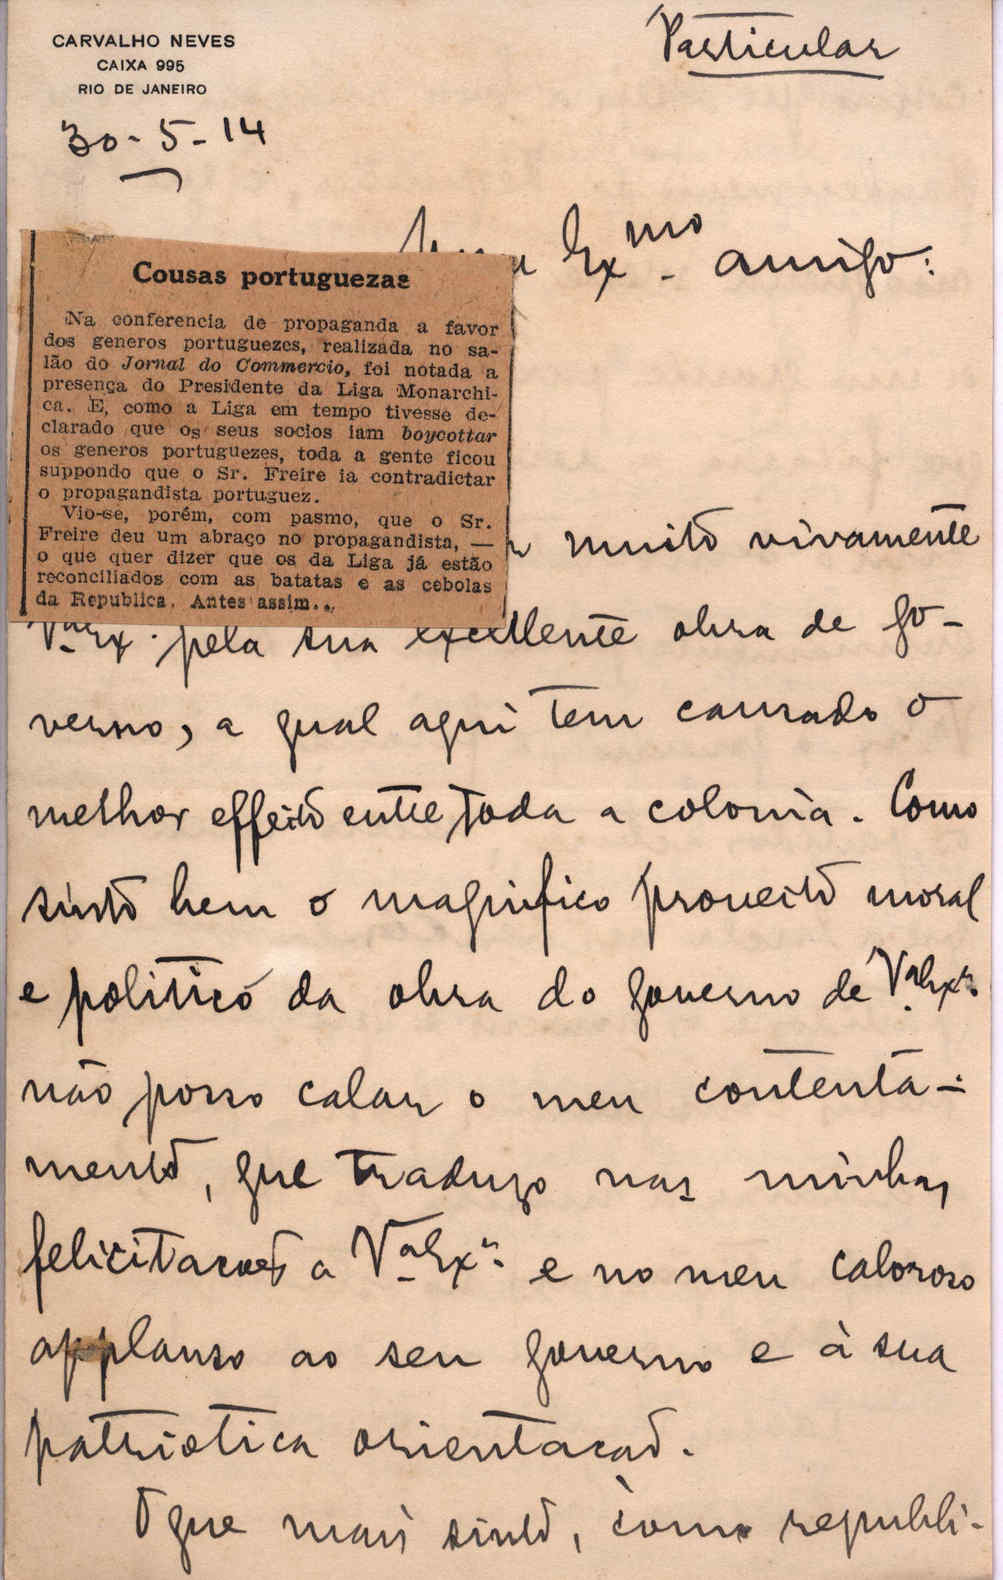 CARVALHO NEVES
CAIXA 995
RIO DE JANEIRO
Particular
30-5-14
Exmo. amigo:
Cousas portuguezas
Na conferencia de propaganda a favor
dos generos portuguezes, realizada no sa-
lão do Jornal do Commercio, foi notada a
presença do Presidente da Liga Monarchi-
ca. E, como a Liga em tempo tivesse de-
clarado que os seus socios iam boycottar
os generos portuguezes, toda a gente ficou
suppondo que o Sr. Freire ia contradictar
o propagandista portuguez.
Vio-se, porém, com pasmo, que o Sr.
Freire deu um abraço no propagandista, —
o que quer dizer que os da Liga já estão
reconciliados com as batatas e as cebolas
da Republica. Antes assim...
muito vivamente
Va Exa. pela sua excellente obra de go-
verno, a qual aqui tem causado o
melhor effeito entre toda a colonia. Como
sinto bem o magnifico proveito moral
e politico da obra do governo de Va Exa.
não posso calar o meu contenta-
mento, que traduzo nas minhas
felicitacoes a Va Exa. e no meu caloroso
applauso ao seu governo e à sua
patriotica orientacao.
O que mais sinto, como republi-